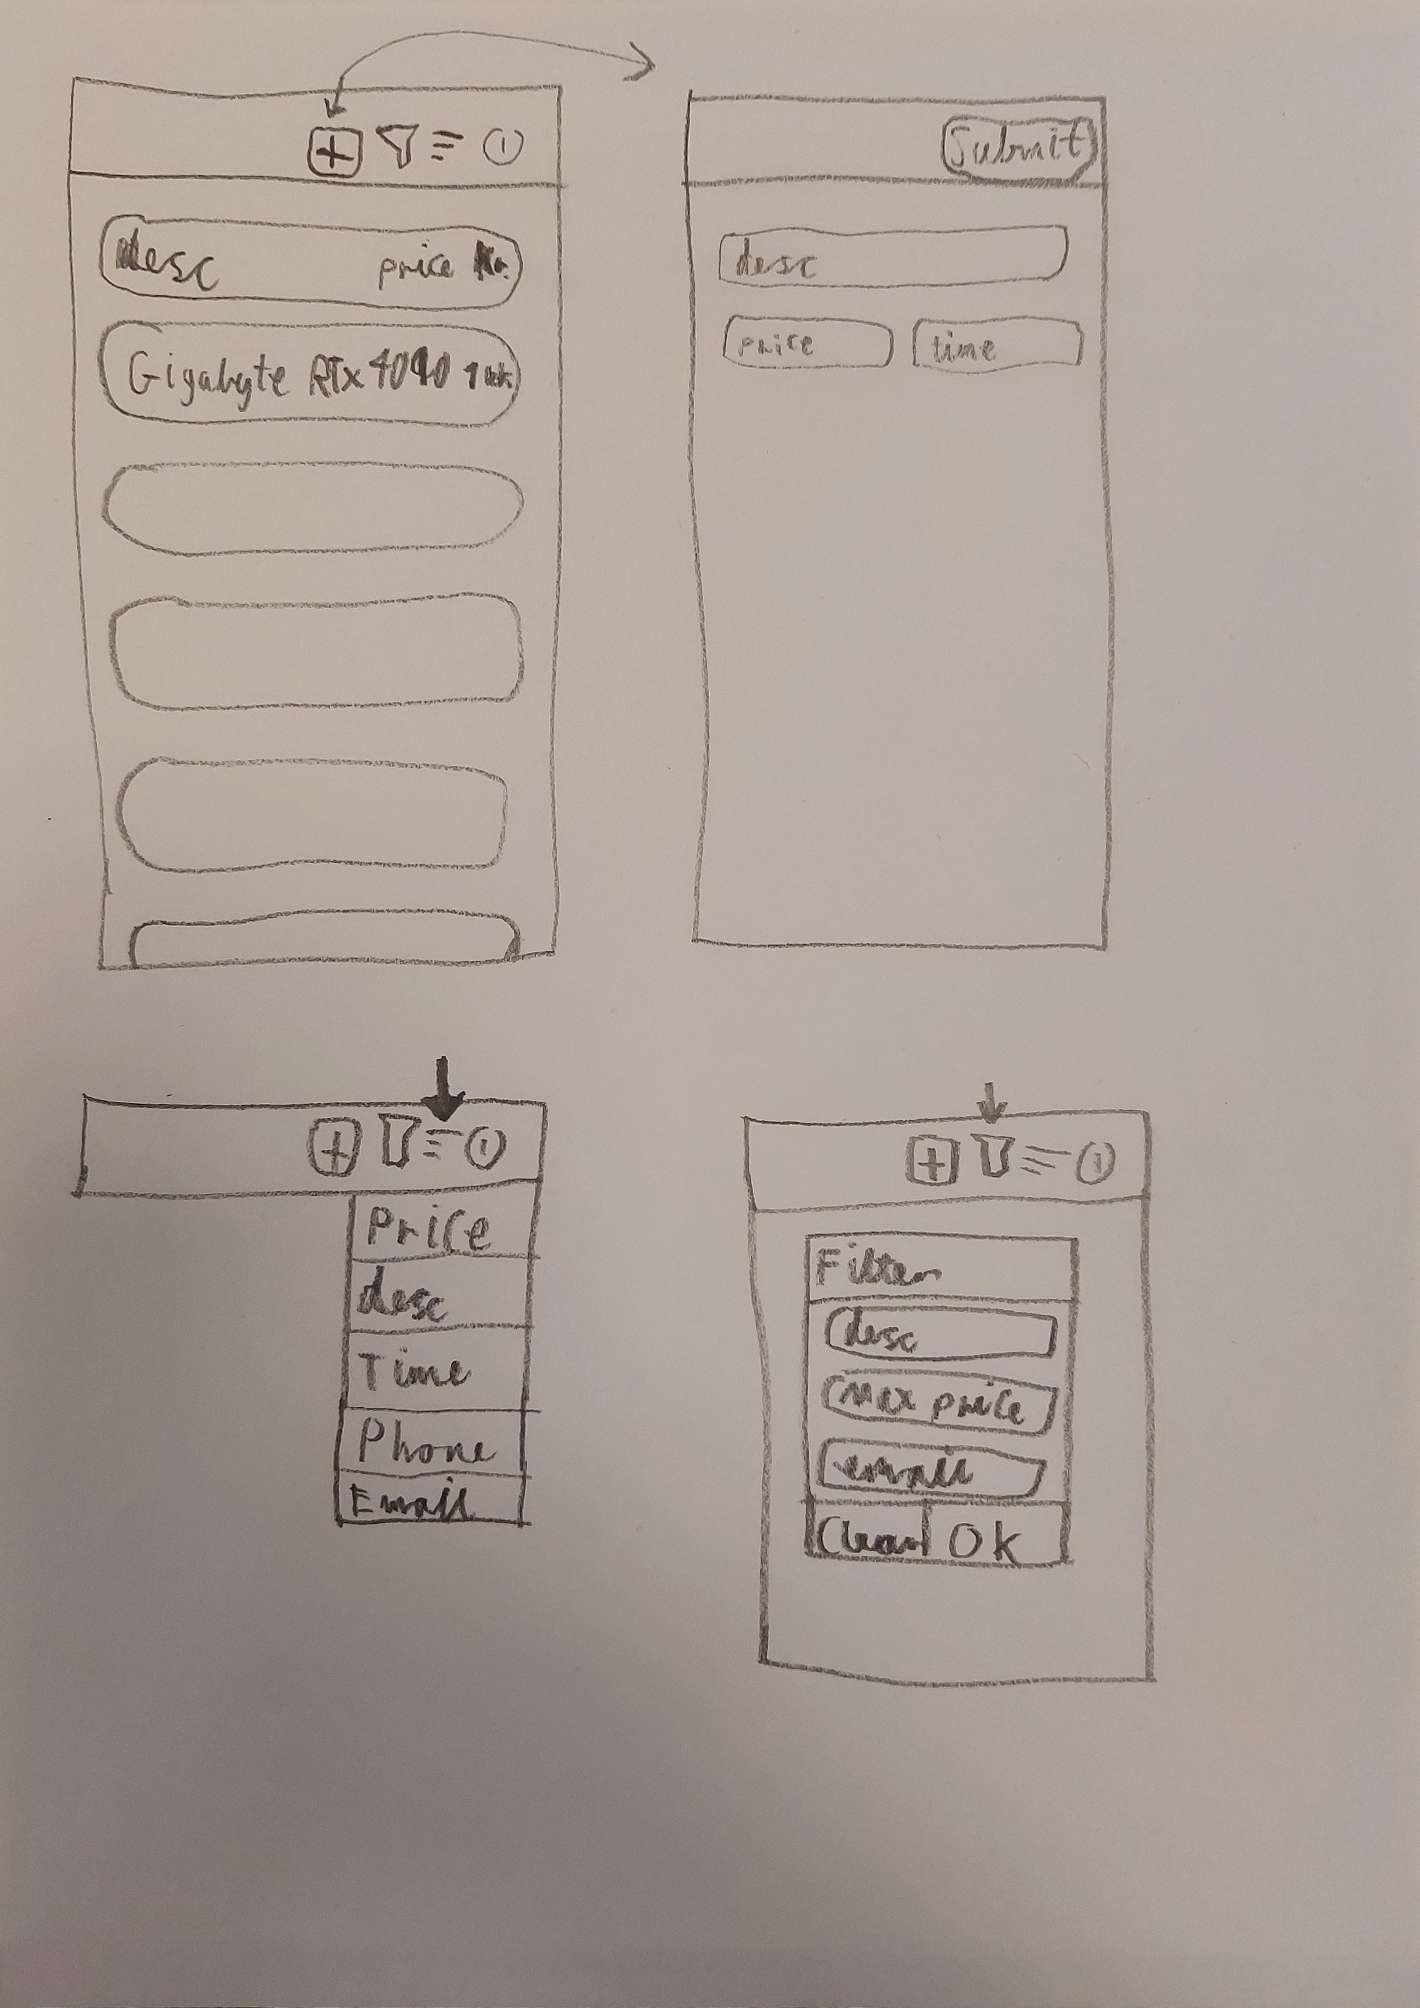 Submit
desc price Kr.
desc
Gigabyte RTX 4090
price time
Price
desc
Time
Phone
Email
Filter
desc
Max price
email
Clear OK